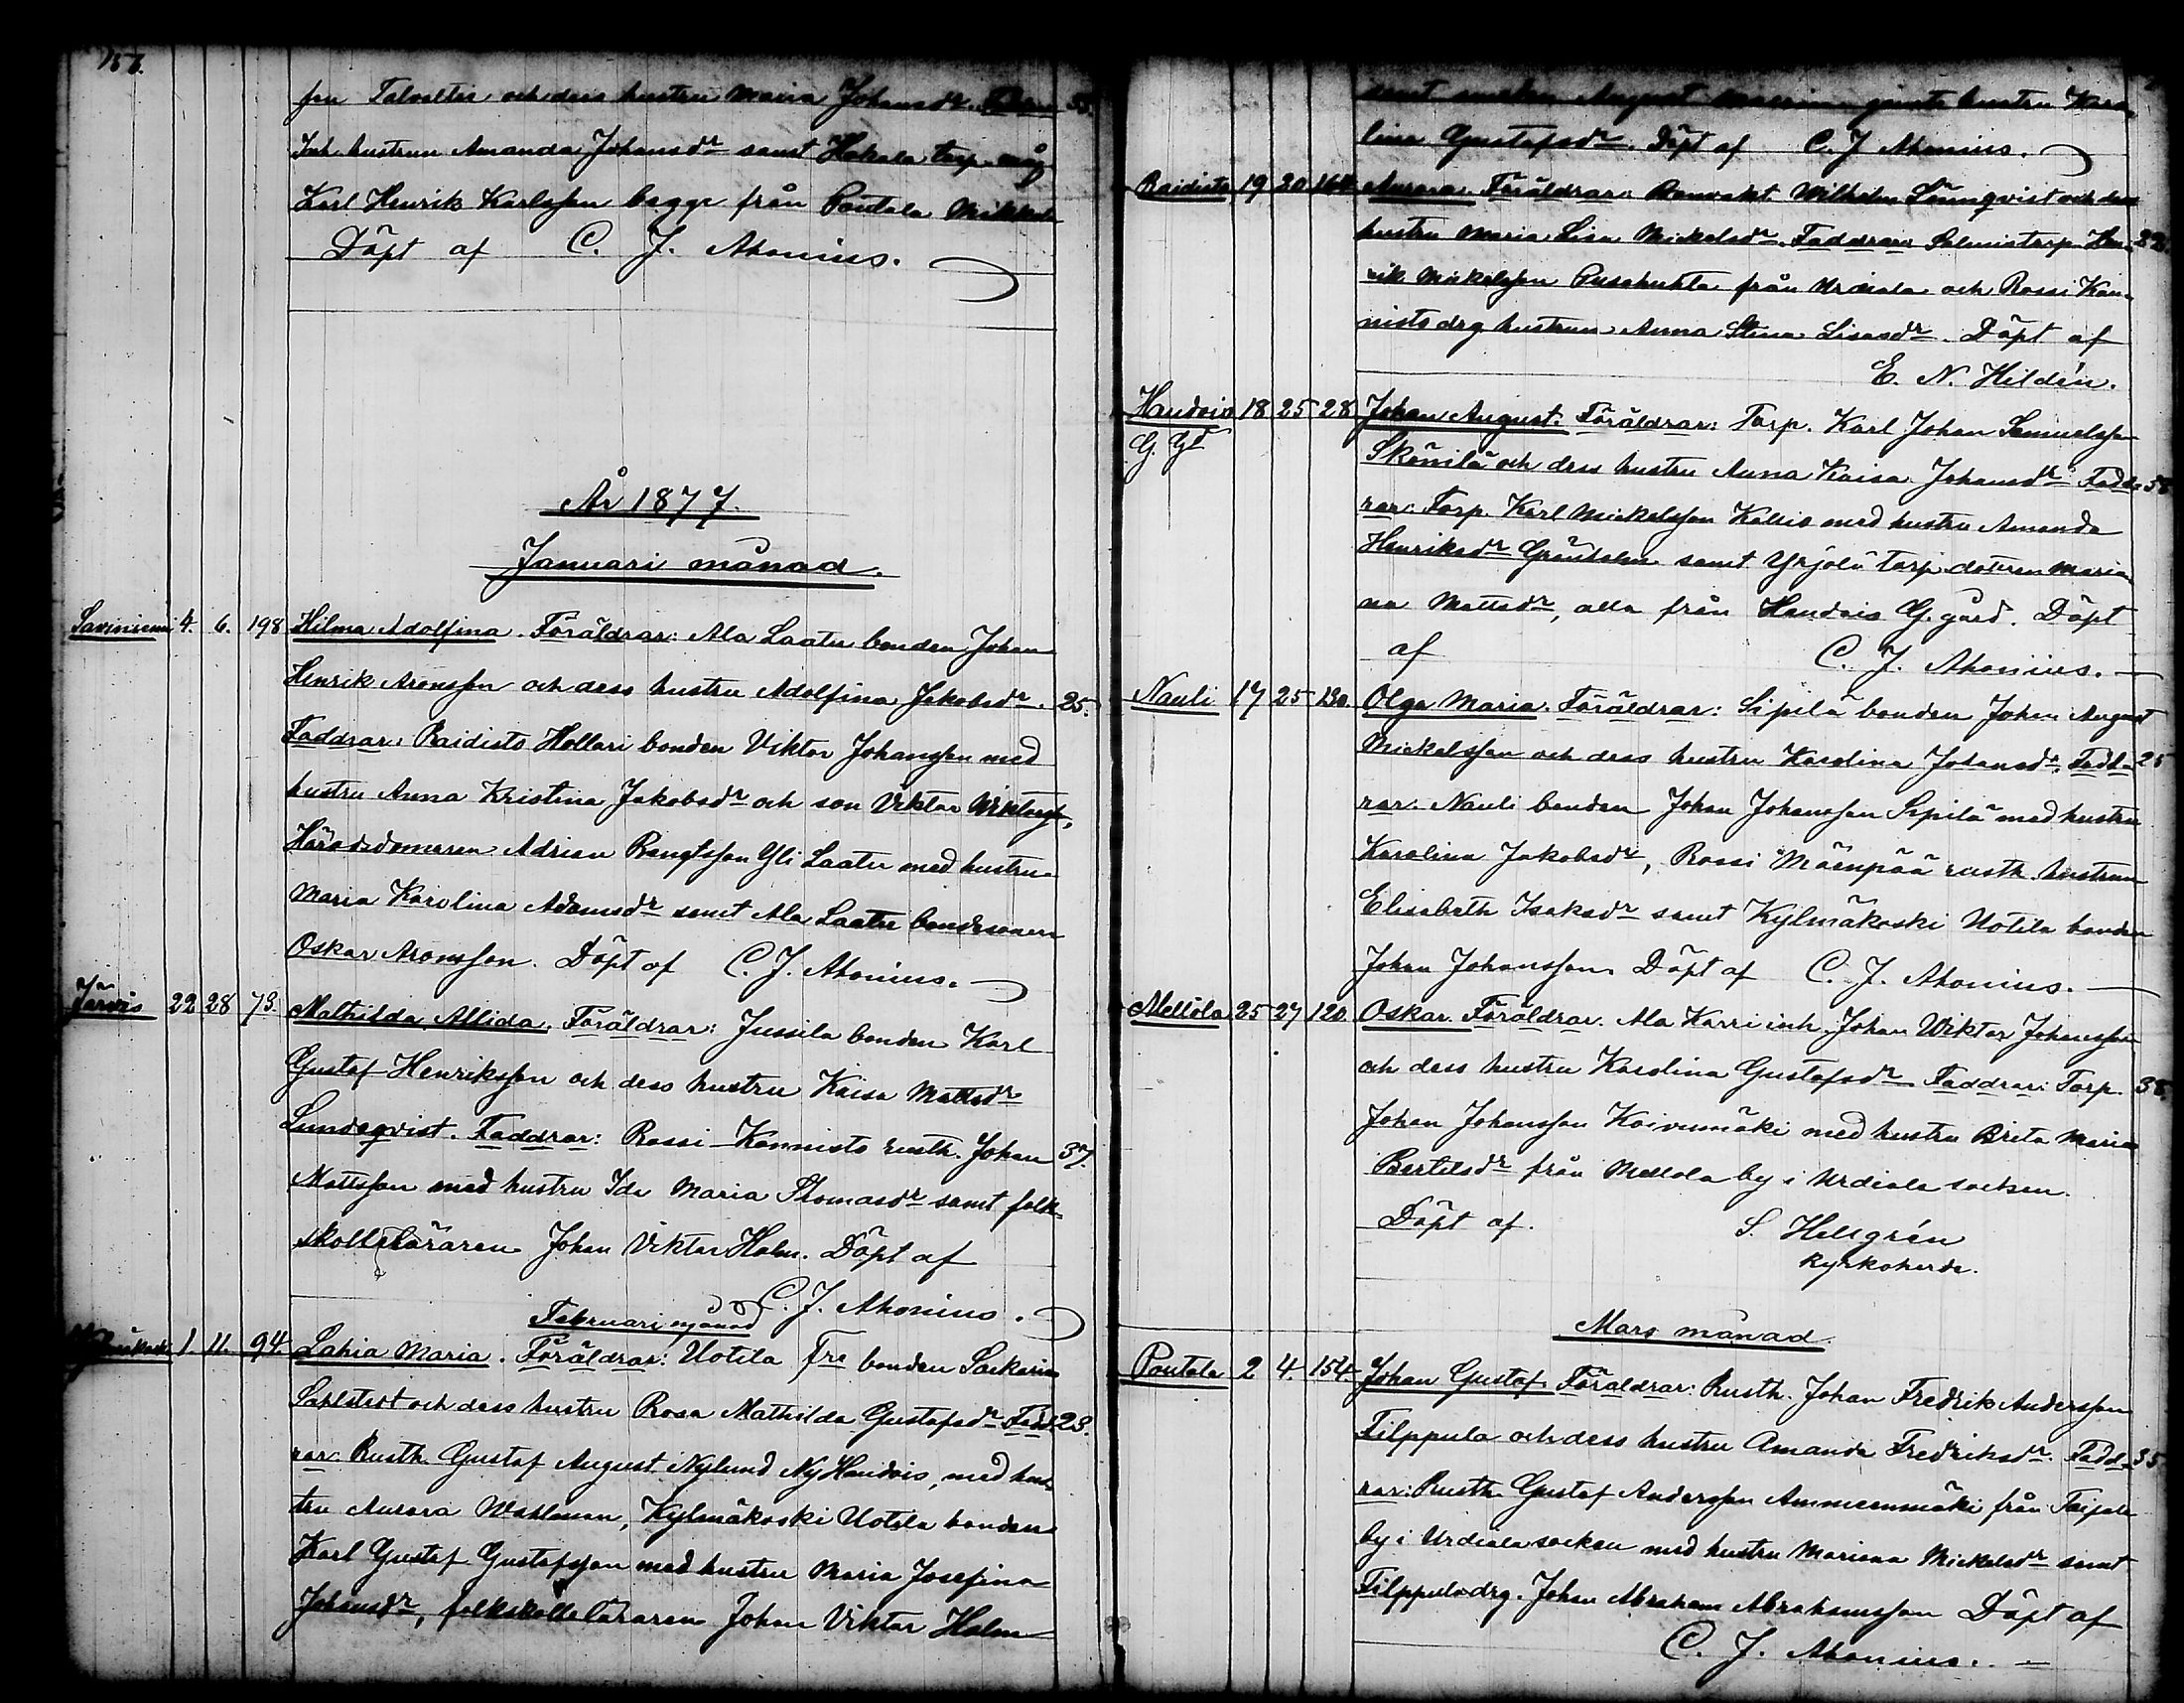 156.
fru Talvitie och dess hustru Maria Johansdr. 38.
Inh. hustrun Amanda Johansdr samt Hakala torp. måg
Karl Henrik Karlsson begge från Pontela Mikkola
Döpt af C. J. Ahonius.
År 1877.
Januari månad.
Saviniemi 4. 6. 198 Hilma Adolfina. Föräldrar: Ala Laatu bonden Johan
Henrik Aronsson och dess hustru Adolfina Jakobsdr. 25.
Faddrar: Raidisto Hollari bonden Viktor Johansson med
hustru Anna Kristina Jakobsdr och son Viktor
Häradsdomaren Adrian Bengtsson Yli Laatu med hustru
Maria Karolina Adamsdr samt Ala Laatu bondesonen
Oskar Aronsson. Döpt af C. J. Ahonius.
Järvis 22 28 73. Mathilda Allida. Föräldrar: Jussila bonden Karl
Gustaf Henriksson och dess hustru Kaisa Mattsdr
Lundqvist. Faddrar: Rossi Kannisto rusth. Johan 37.
Mattsson med hustru Ida Maria Thomasdr samt folk-
skolleläraren Johan Viktor Holm. Döpt af
C. J. Ahonius.
Februari månad
1 11. 94. Lahia Maria. Föräldrar: Uotila frs bonden Sackarias
Sahlstedt och dess hustru Rosa Mathilda Gustafsdr. Fadd- 23.
rar: Rusth. Gustaf August Nylund Ny Haudois, med hus-
tru Aurora Wahlman, Kylmäkoski Uotila bonden
Karl Gustaf Gustafsson med hustru Maria Josefina
Johansdr, folkskolleläraren Johan Viktor Holm
samt August hustru Karo-
lina Gustafsdr. Döpt af C. J. Ahonius.
Raidisto 19 20 164 Aurora. Föräldrar: Banvakt Wilhelm Lönnqvist och dess
hustru Maria Lisa Mickelsdr. Faddrar: Salmis torp. Hen- 32.
rik Mickelsson Pusahuhta från Urdiala och Rossi Kan-
nisto drg hustrun Anna Stina Lisasdr. Döpt af
E. N. Hildén.
Haudois 18 25 28 Johan August. Föräldrar: Torp. Karl Johan Samuelsson
G. Gd Skönilä och dess hustru Anna Kaisa Johansdr. Fadd-
rar: Torp. Karl Mickelsson Kallio med hustru Amanda
Henriksdr Grönholm samt Yrjölä torp. dottren Maria
na Mattsdr, alla från Haudois G. gård. Döpt
af C. J. Ahonius.
Nauli 17 25 130. Olga Maria. Föräldrar: Sipilä bonden Johan August
Mickelsson och dess hustru Karolina Johansdr. Fadd- 25
rar: Nauli bonden Johan Johansson Sipilä med hustru
Karolina Jakobsdr, Rossi Mäenpää rusth. hustrun
Elisabeth Isaksdr samt Kylmäkoski Uotila bonden
Johan Johansson. Döpt af C. J. Ahonius.
Mellola 25 27 120. Oskar. Föräldrar: Ala Karri inh. Johan Wiktor Johansson
och dess hustru Karolina Gustafsdr. Faddrar: Torp. 38.
Johan Johansson Koivumäki med hustru Brita Maria
Bertilsdr från Mellola by i Urdiala socken.
Döpt af. S. Hellgrén
kyrkoherde.
Mars månad.
Pontela 2 4. 154 Johan Gustaf. Föräldrar: Rusth. Johan Fredrik Andersson
Filppula och dess hustru Amanda Fredriksdr. Fadd- 35.
rar: Rusth. Gustaf Andersson Ammeenmäki från Taipale
by i Urdiala socken med hustru Mariana Mickelsdr samt
Filppula drg. Johan Abraham Abrahamsson Döpt af
C. J. Ahonius.